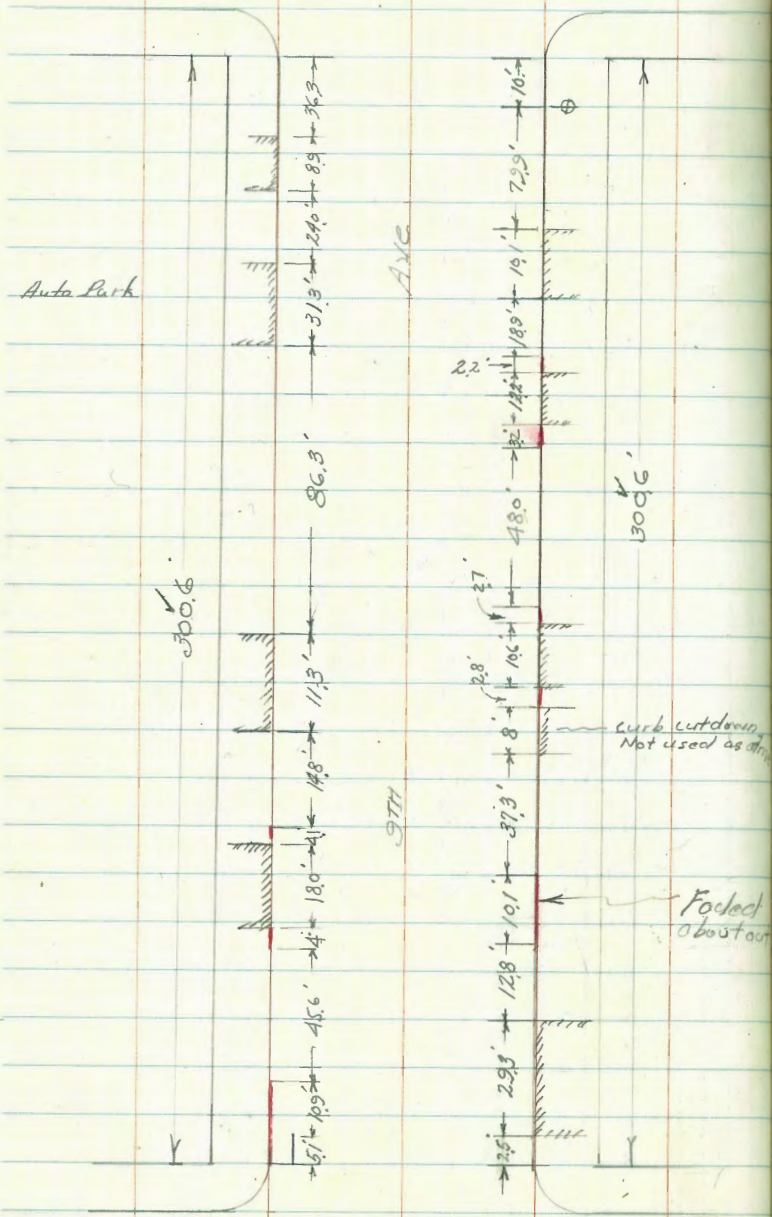 Auto Park
300.6'
36.3
8.9
24.0'
31.3'
86.3'
11.3'
14.8'
4.1'
18.0'
4'
45.6'
10.9'
5.1'
9TH AVE
10'
79.9'
19.1'
18.9'
2.2'
12.2'
3.2'
48.0'
2.7'
10.6'
2.8'
8'
37.3'
10.1'
12.8'
29.3'
2.5'
300.6'
curb cutdown
Not used as
Faded
about out